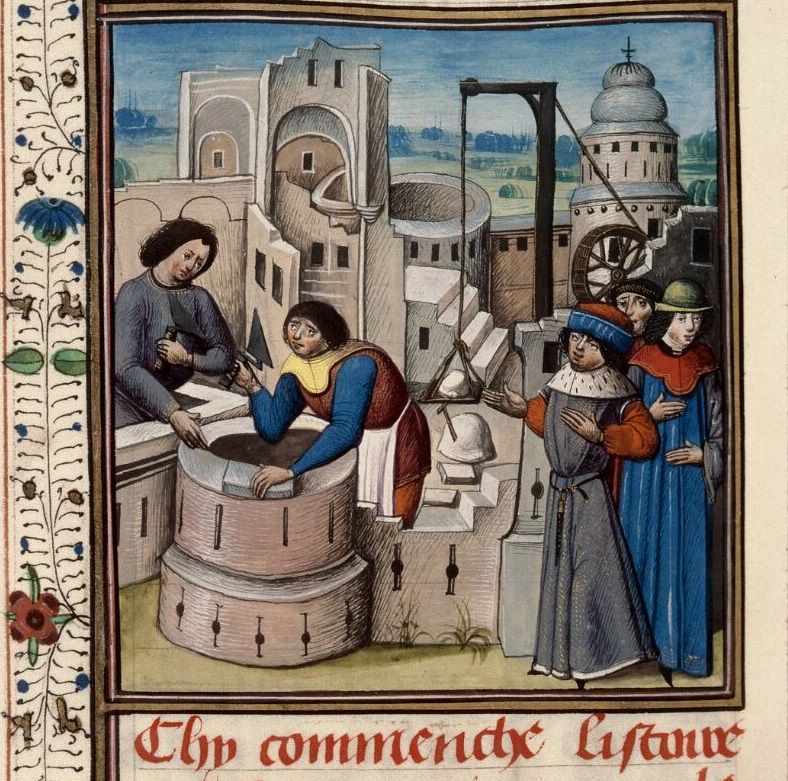 Chy commenche listoire